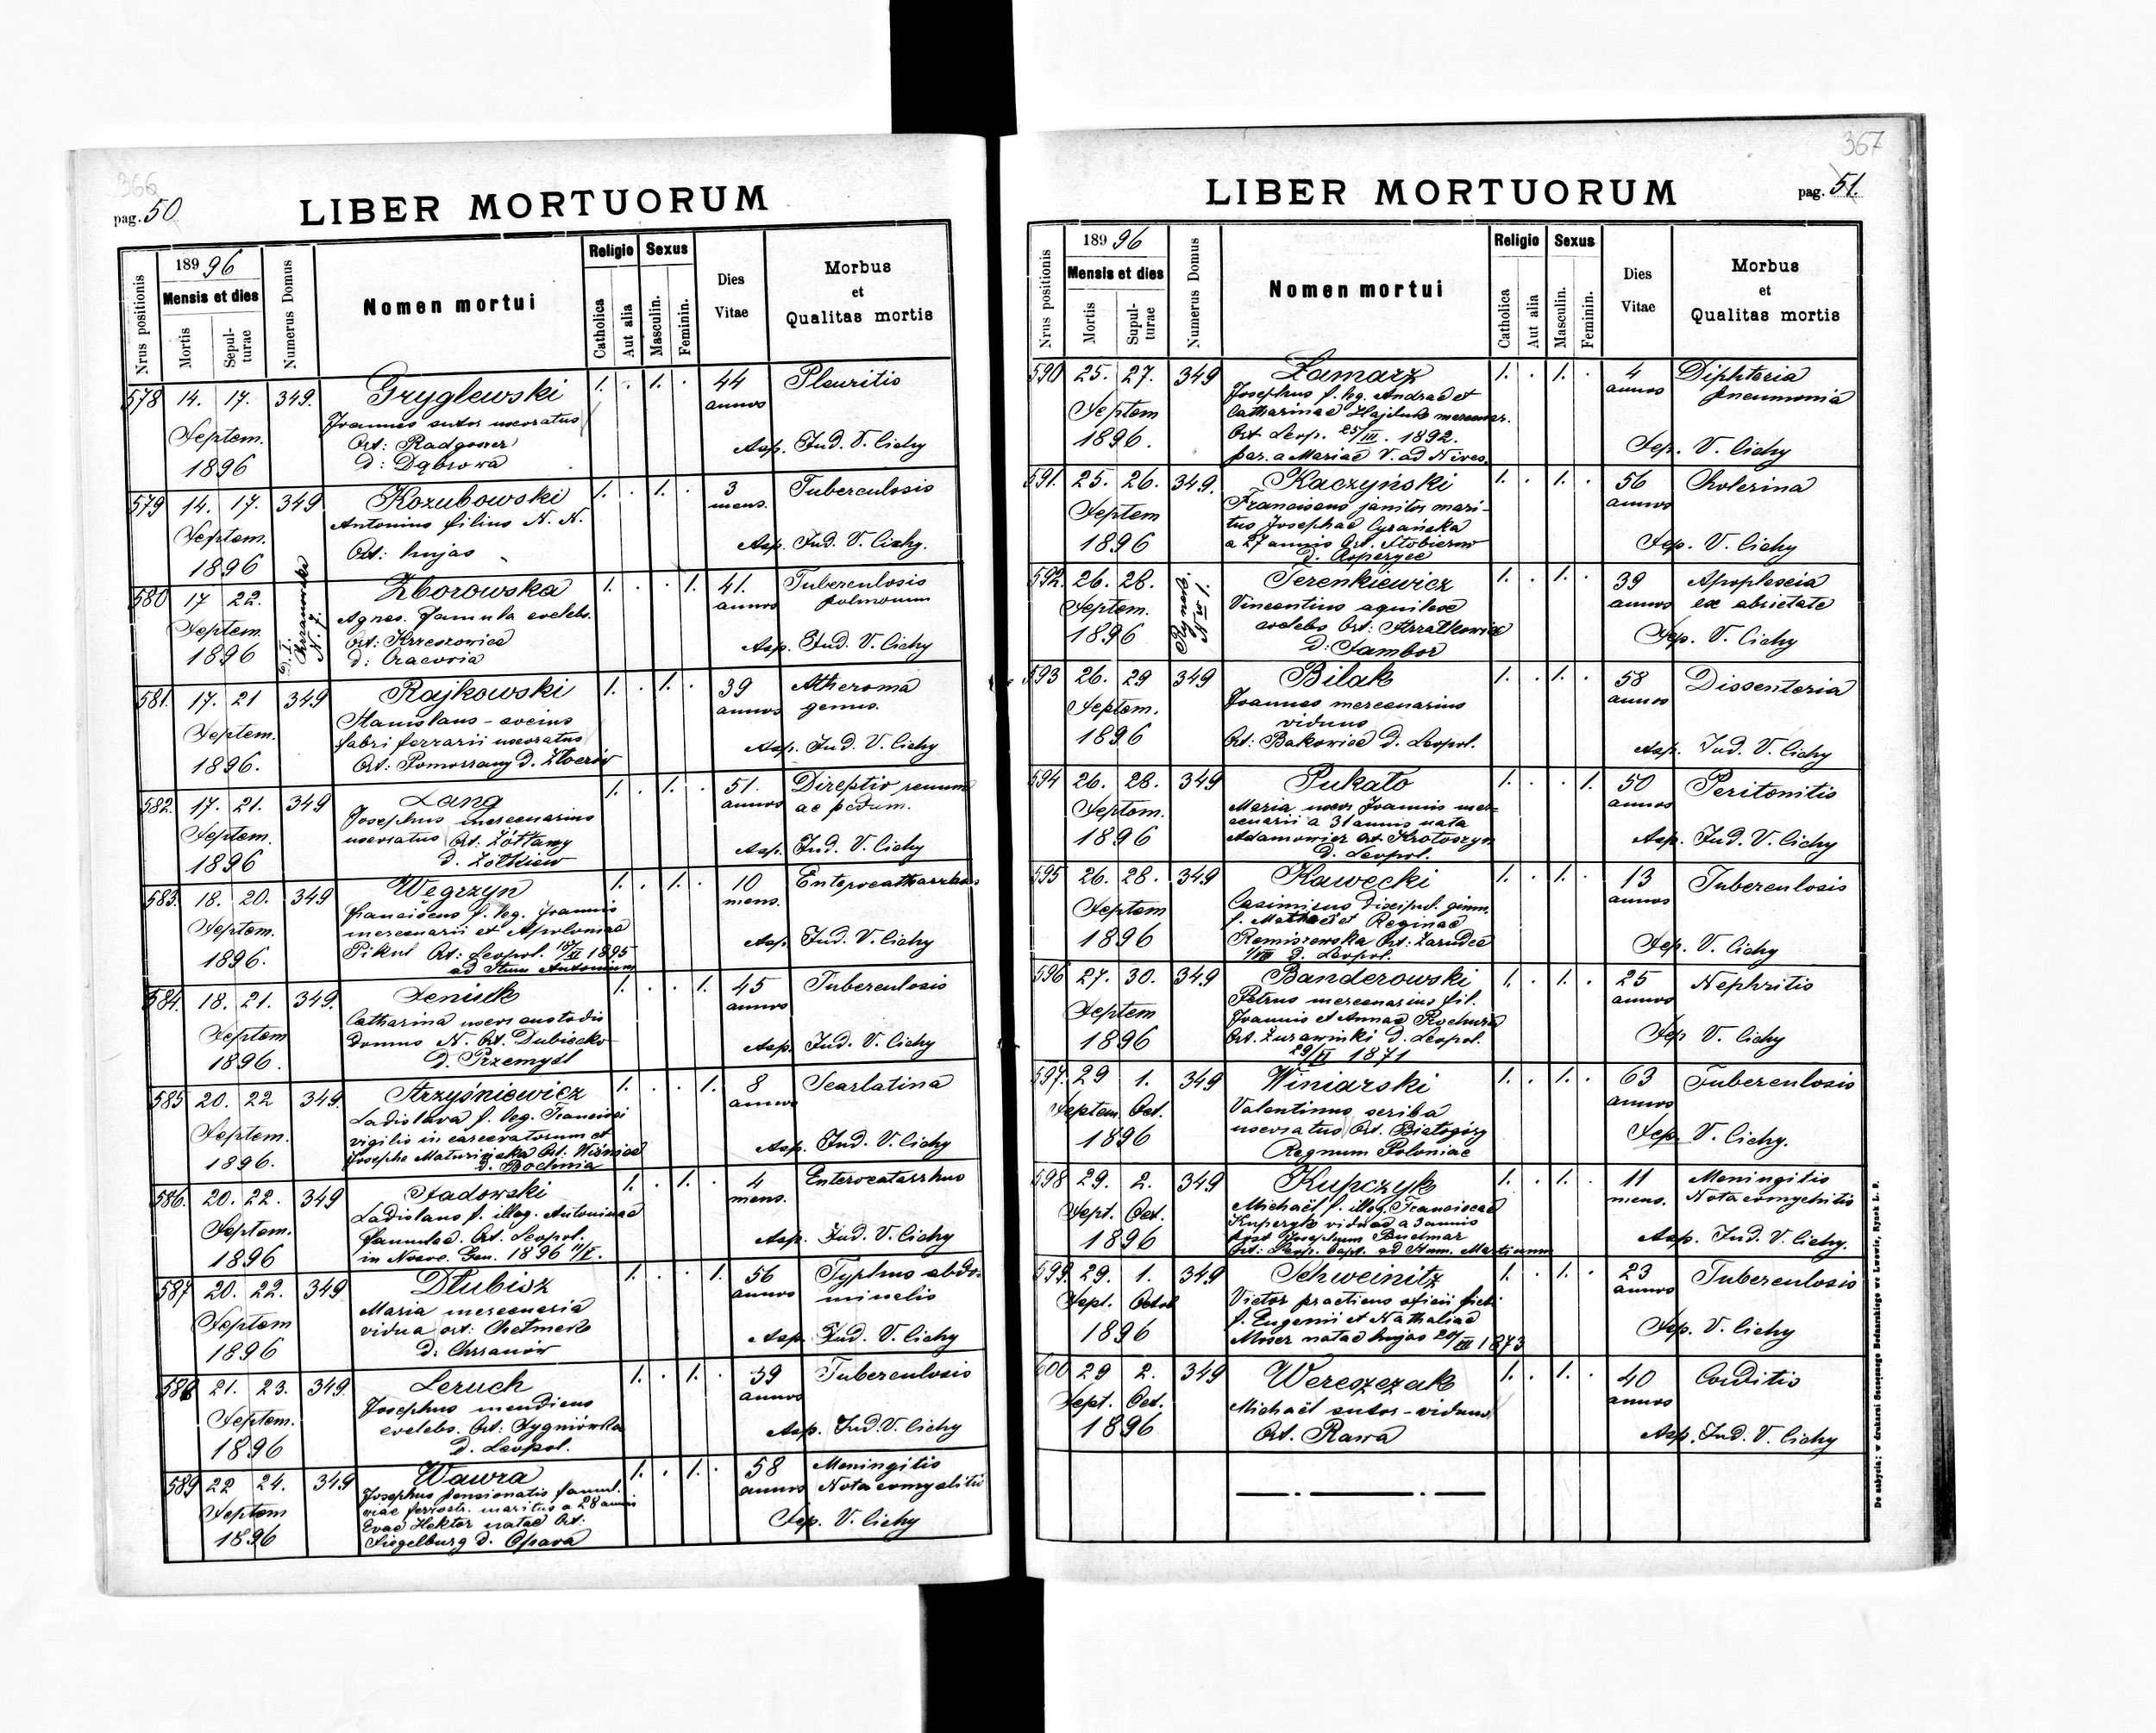 366
pag. 50
LIBER MORTUORUM
Nrus positionis
189 96
Mensis et dies
Mortis
Sepul-
turae
Numerus Domus
Nomen mortui
Religio
Catholica
Aut alia
Sexus
Masculin.
Feminin.
Dies
Vitae
Morbus
et
Qualitas mortis
578 14. 17. 349. Gryglewski 1. . 1. . 44 Pleuritis
Septem. Joannes sutor uxoratus annos
1896 Ort:
d: Dąbrowa Asp. Jud. V. Cichy
579 14. 17. 349 Kozubowski 1. . 1. . 3 Tuberculosis
Septem. Antonius filius N. N. mens.
1896 Ort: hujas Asp. Jud. V. Cichy.
580 17 22. Zborowska 1. . . 1. 41. Tuberculosis
Septem. Agnes famula coelebs. annos pulmonum
1896 N. 7. Ort: Krzeszowice
d: Cracovia Asp. Jud. V. Cichy
581. 17. 21 349 Rajkowski 1. . 1. . 39 Atheroma
Septem. Stanislaus - socius annos genus.
1896. fabri ferrarii uxoratus
Ort: Pomorzany d. Asp. Jud. V. Cichy
582. 17. 21. 349 Lang 1. . 1. . 51. Direptio renum
Septem. Josephus mercenarius annos ac
1896 uxoratus Ort: Żółtańcy
d. Żółkiew Asp. Jud. V. Cichy
583. 18. 20. 349 Węgrzyn 1. . 1. . 10 Enterocatharrhus
Septem. Franciscus f. leg. Joannis mens.
1896. mercenarii et Apoloniae
Pikul Ort: Leopol. 1895
ad Stum Antonium Asp. Jud. V. Cichy
584. 18. 21. 349. Seniuk 1. . . 1. 45 Tuberculosis
Septem Catharina uxor custodis annos
1896. domus N. Ort. Dubiecko
d. Przemyśl Asp. Jud. V. Cichy
585 20. 22 349. Strzyśniewicz 1. . . 1. 8 Scarlatina
Septem. Ladislava f. leg. Francisci annos
1896. vigilis in carceratorum et
Josepha Ort: Wiśnicz
d. Bochnia Asp. Jud. V. Cichy
586. 20. 22. 349 Sadowski 1. . 1. . 4 Enterocatarrhus
Septem. Ladislaus f. illeg. Antoninae mens.
1896 famulae. Ort. Leopol.
in Gen. 1896 Asp. Jud. V. Cichy
587 20. 22. 349 Dłubisz 1. . . 1. 56 Typhus abdo-
Septem Maria mercenaria annos minalis
1896 vidua ort: Chełmek
d: Chrzanow Asp. Jud. V. Cichy
588 21. 23. 349. Leruch 1. . 1. . 39 Tuberculosis
Septem. Josephus mendicus annos
1896 coelebs. Ort: Sygniówka
d. Leopol. Asp. Jud. V. Cichy
589 22 24. 349 Wawra 1. . 1. . 58 Meningitis
Septem Josephus pensionatus famul. annos Nota
1896 viae ferreae maritus a 28 annis
Evae Hektor natae Ort:
Siegelburg d. Opava Sep. V. Cichy
367
pag. 51.
LIBER MORTUORUM
Nrus positionis
189 96
Mensis et dies
Mortis
Supul-
turae
Numerus Domus
Nomen mortui
Religio
Catholica
Aut alia
Sexus
Masculin.
Feminin.
Dies
Vitae
Morbus
et
Qualitas mortis
590 25. 27. 349 Łamarz 1. . 1. . 4 Diphteria
Septem Josephus f. leg. Andreae et annos pneumonia
1896. Catharinae Hajduk mercenar.
Ort Leop. 25/III. 1892.
par. a Mariae V. ad Nives. Sep. V. Cichy
591. 25. 26. 349. Kaczyński 1. . 1. . 56 Cholerina
Septem Franciscus janitor mari- annos
1896 tus Josephae Cyrańska
a 27 annis Ort. Stobierna
d. Ropczyce Sep. V. Cichy
592. 26. 28. Terenkiewicz 1. . 1. . 39 Apoplexia
Septem. Vincentius annos ex ebrietate
1896 coelebs Ort:
d: Sambor Sep. V. Cichy
593 26. 29 349 Bilak 1. . 1. . 58 Dissenteria
Septem. Joannes mercenarius annos
1896 viduus
Ort: Bakowice d. Leopol. Asp. Jud. V. Cichy
594 26. 28. 349 Pukało 1. . . 1. 50 Peritonitis
Septem. Maria uxor Joannis mer- annos
1896 cenarii a 31 annis nata
Adamowicz ort. Krotoszyn
d. Leopol. Asp. Jud. V. Cichy
595 26. 28. 349 Kawecki 1. . 1. . 13 Tuberculosis
Septem Casimirus discipul. gimn. annos
1896 f. Mathaei et Reginae
Remiszewska Ort: Zarudce
d. Leopol. Sep. V. Cichy
596 27. 30. 349 Banderowski 1. . 1. . 25 Nephritis
Septem Petrus mercenarius fil. annos
1896 Joannis et Annae
Ort. Żurawniki d. Leopol.
29/VI 1871 Sep V. Cichy
597. 29 1. 349 Winiarski 1. . 1. . 63 Tuberculosis
Septem. Oct. Valentinus scriba annos
1896 uxoratus Ort. Białogórg
Regnum Poloniae Sep. V. Cichy.
598 29. 2. 349 Kupczyk 1. . 1. . 11 Meningitis
Sept. Oct. Michaël f. illeg. Franciscae mens. Nota
1896 Kupczyk viduae a 3 annis
post Josephum
Ort: Leop. bapt. ad Stum. Martinum Asp. Jud. V. Cichy.
599. 29. 1. 349 Schweinitz 1. . 1. . 23 Tuberculosis
Sept. Octob Victor practicus oficii annos
1896 f. Eugenii et Nathaliae
Moser natae hujas 20/III 1873 Sep. V. Cichy
600 29 2. 349 Wereszczak 1. . 1. . 40 Conditis
Sept. Oct. Michaël sutor - viduus annos
1896 Ort. Rawa Asp. Jud. V. Cichy
De nabycia: w drukarni Szczęsnego Bednarskiego we Lwowie, Rynek L. 9.